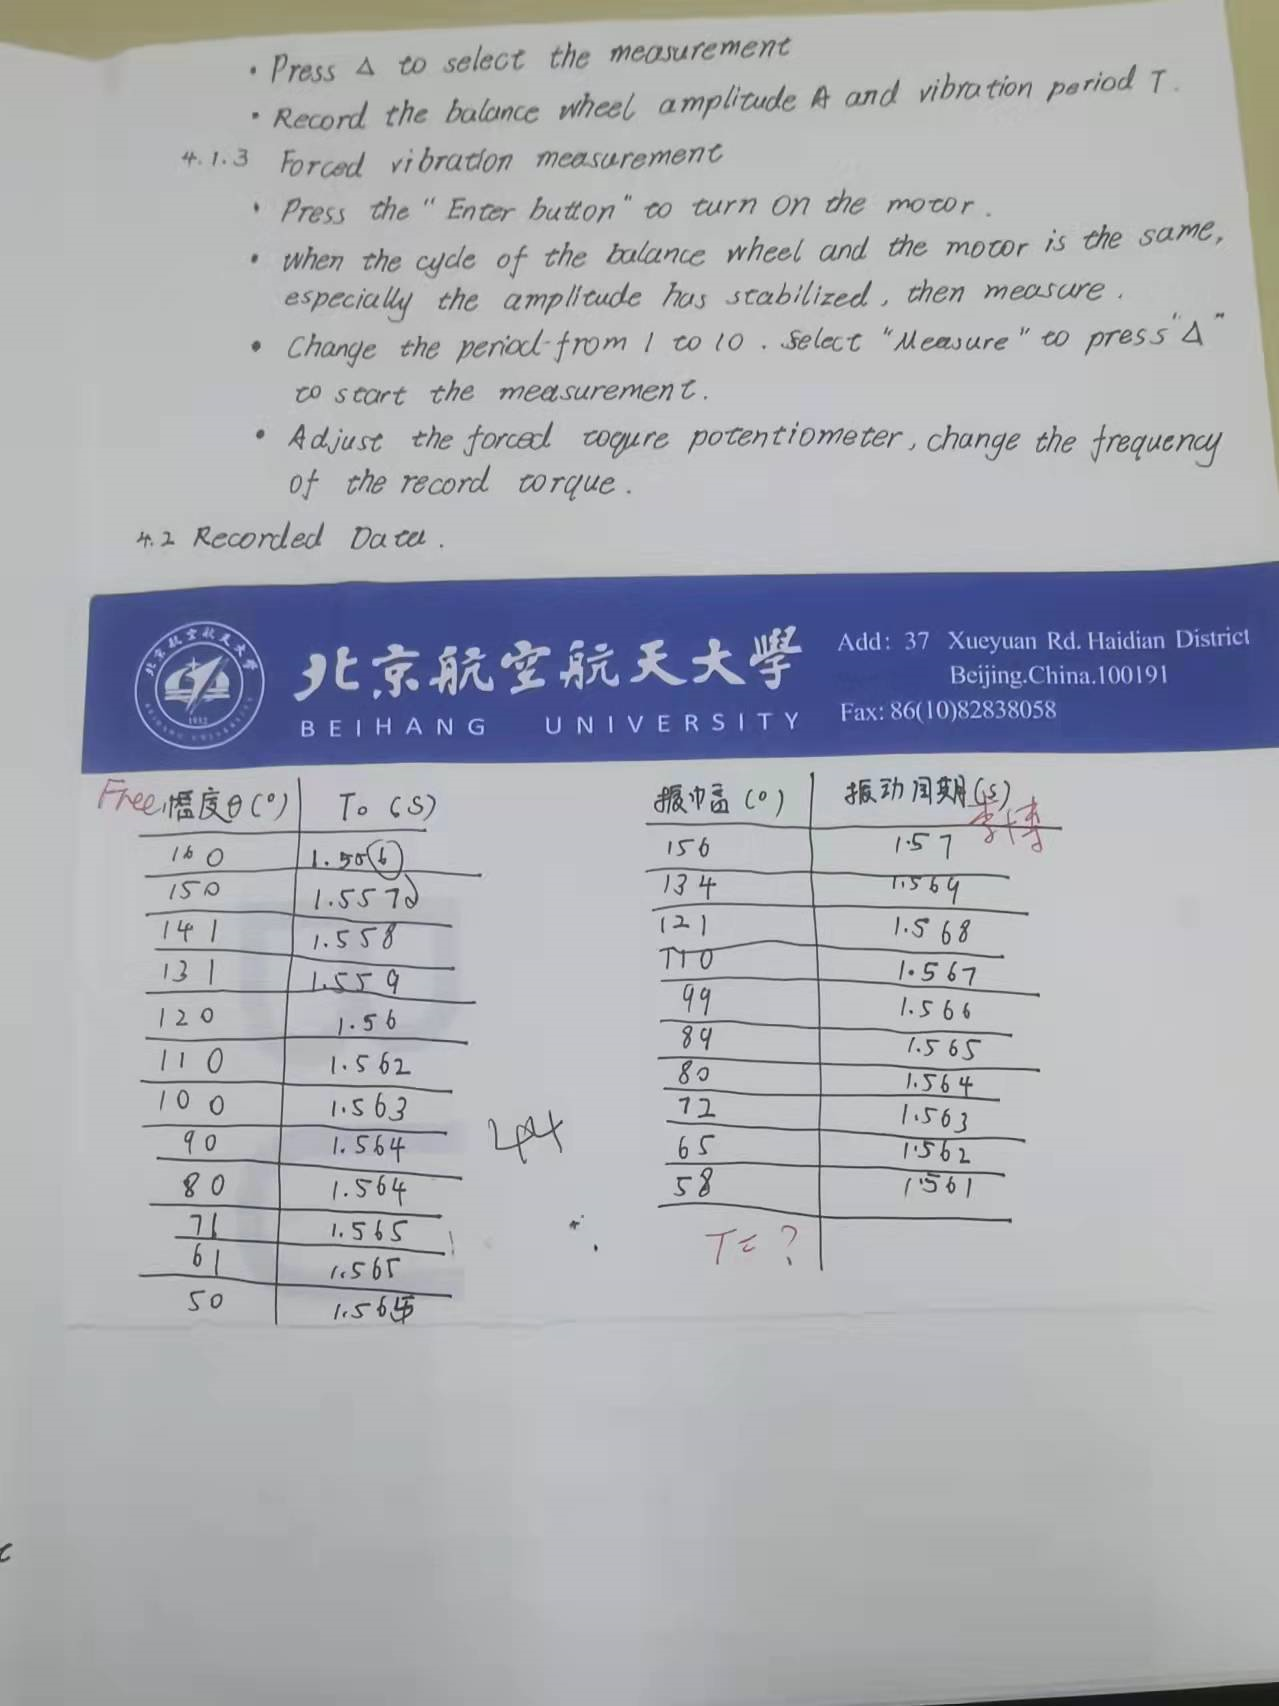 · Press Δ to select the measurement
· Record the balance wheel amplitude A and vibration period T.
4.1.3 Forced vibration measurement
· Press the "Enter button" to turn on the motor.
· When the cycle of the balance wheel and the motor is the same,
especially the amplitude has stabilized, then measure.
· Change the period from 1 to 10. Select "Measure" to press "Δ"
to start the measurement.
· Adjust the forced toqure potentiometer, change the frequency
of the record torque.
4.2 Recorded Data.
北京航空航天大學
BEIHANG UNIVERSITY
Add: 37 Xueyuan Rd. Haidian District
Beijing.China.100191
Fax: 86(10)82838058
北京航空航天大學
1952
Free 幅度θ(°) T₀ (S)
160 1.556
150 1.557
141 1.558
131 1.559
120 1.56
110 1.562
100 1.563
90 1.564
80 1.564
71 1.565
61 1.565
50 1.565
振巾畐(°) 振动周期(s)
156 1.57
134 1.569
121 1.568
110 1.567
99 1.566
89 1.565
80 1.564
72 1.563
65 1.562
58 1.561
T= ?